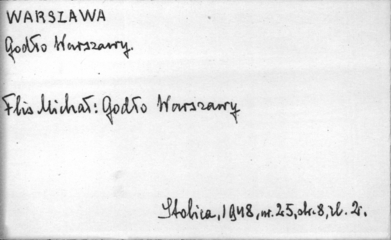 WARSZAWA
Godło Warszawy.
Flis Michał: Godło Warszawy
Stolica, 1948, nr. 25, str. 8, il. 2.